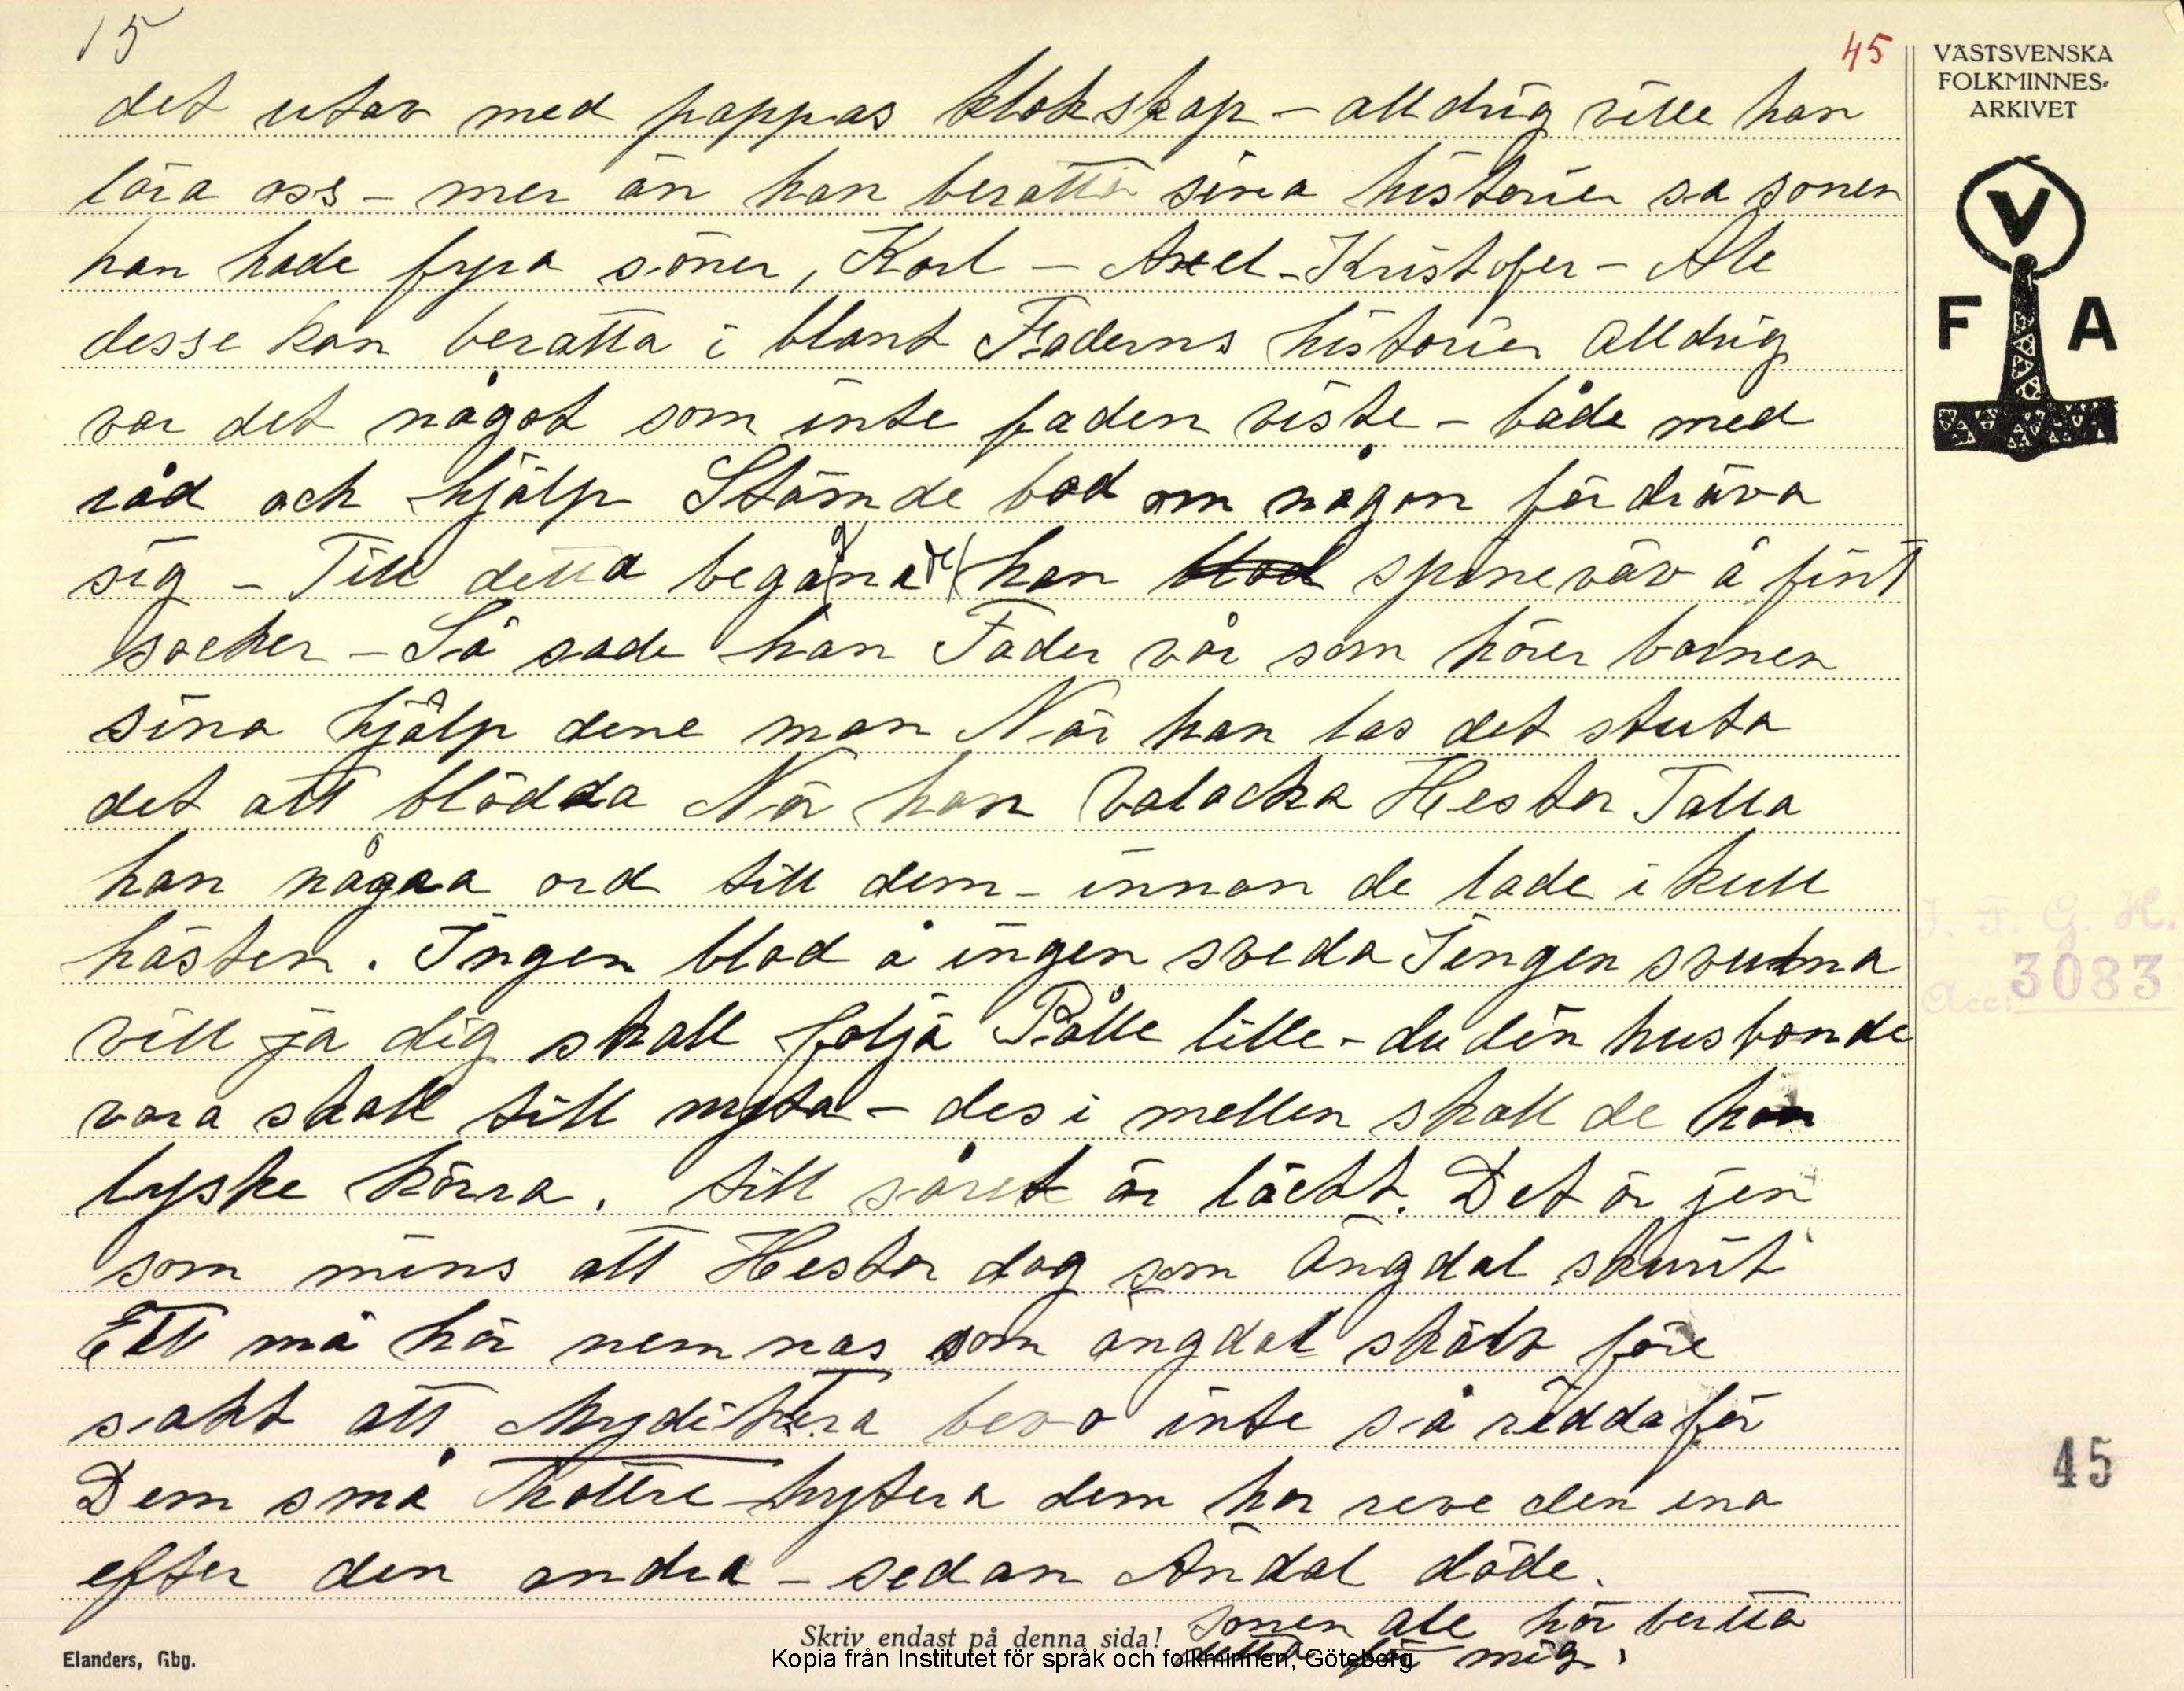 15
45
VÄSTSVENSKA
FOLKMINNES-
ARKIVET
V
F A
det utav med pappas klokskap - alldrig ville han
lära oss - mer än han berätta sina historier sa sonen
han hade fyra söner, Karl - Axel - Kristofer - Ale
desse kan berätta i bland Faderns historier alldrig
var det något som inte faden viste - både med
råd och hjälp Stämde bod om någon för
sig - Till detta han blod spineväv å fint
socker - Så sade han Fader vår som hörer barnen
sina hjälp dene man När han las det sluta
det att blödda När han valacka Hester Talla
han några ord till dem - innan de lade i kull
hästen. Ingen blod å ingen sveda Iengen svulma
vill ja dig skall följa Pålle lille - du din husbonde
vara skall till nyta - des i mellen skall de han
lyske körra. till såret är läckt. Det är jen
som mins att Hester dog som Ängdal skurit
Ett må här nemnas som ängdal skälv före
sakt att inte så rädda för
Dem små hyttera dem har reve den ena
efter den andra - sedan Ändal döde.
sonen Ale här bertta
detta för mig.
Skriv endast på denna sida!
Kopia från Institutet för språk och folkminnen, Göteborg
Elanders, Gbg.
I. F. G. H.
Acc: 3083
45